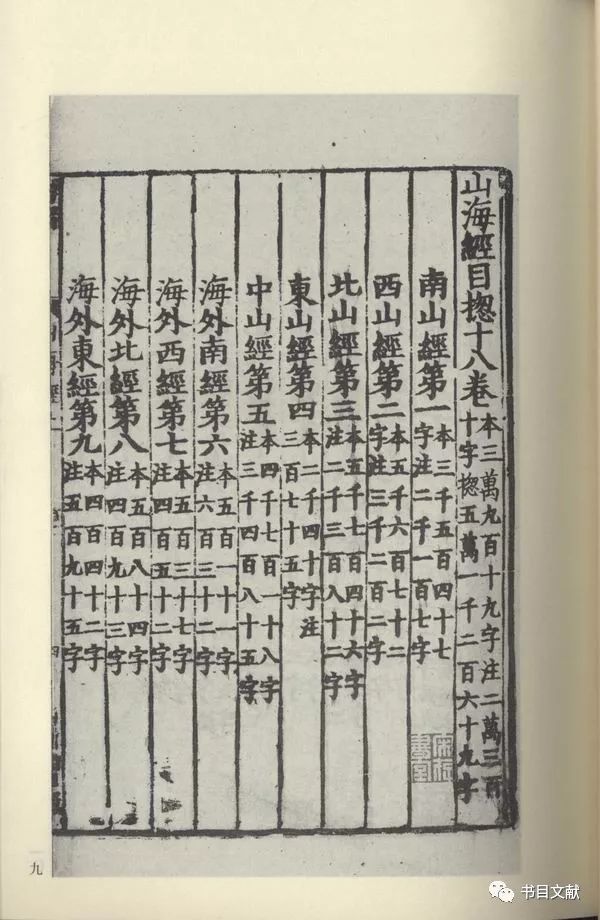 山海經目揔十八卷本三萬九百十九字注二萬三百
十字揔五萬一千二百六十九字
南山經第一本三千五百四十七
字注二千一百七字
西山經第二本五千六百七十二
字注三千二百二字
北山經第三本五千七百四十六字
注二千三百八十二字
東山經第四本二千四十字注
三百七十五字
中山經第五本四千七百一十八字
注三千四百八十五字
海外南經第六本五百一十一字
注六百三十二字
海外西經第七本五百三十七字
注四百五十二字
海外北經第八本五百八十四字
注四百九十三字
海外東經第九本四百四十二字
注五百九十五字
九
书目文献